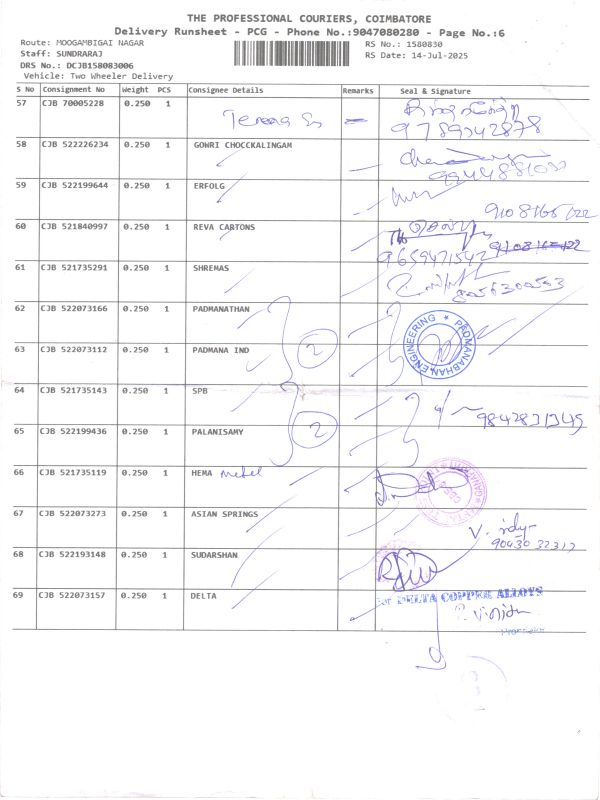 THE PROFESSIONAL COURIERS, COIMBATORE
Delivery Runsheet - PCG - Phone No.:9047080280 - Page No.:6
Route: MOOGAMBIGAI NAGAR RS No.: 1580830
Staff: SUNDRARAJ RS Date: 14-Jul-2025
DRS No.: DCJB158083006
Vehicle: Two Wheeler Delivery
S No Consignment No Weight PCS Consignee Details Remarks Seal & Signature
57 CJB 70005228 0.250 1
9789342878
58 CJB 522226234 0.250 1 GOWRI CHOCCKALINGAM
59 CJB 522199644 0.250 1 ERFOLG
9108165122
60 CJB 521840997 0.250 1 REVA CARTONS
9659471542
61 CJB 521735291 0.250 1 SHREMAS
62 CJB 522073166 0.250 1 PADMANATHAN
PADMANABHAN ENGINEERING
63 CJB 522073112 0.250 1 PADMANA IND 2
64 CJB 521735143 0.250 1 SPB
65 CJB 522199436 0.250 1 PALANISAMY 2
66 CJB 521735119 0.250 1 HEMA metel
67 CJB 522073273 0.250 1 ASIAN SPRINGS
68 CJB 522193148 0.250 1 SUDARSHAN
69 CJB 522073157 0.250 1 DELTA
For DELTA COPPER ALLOYS